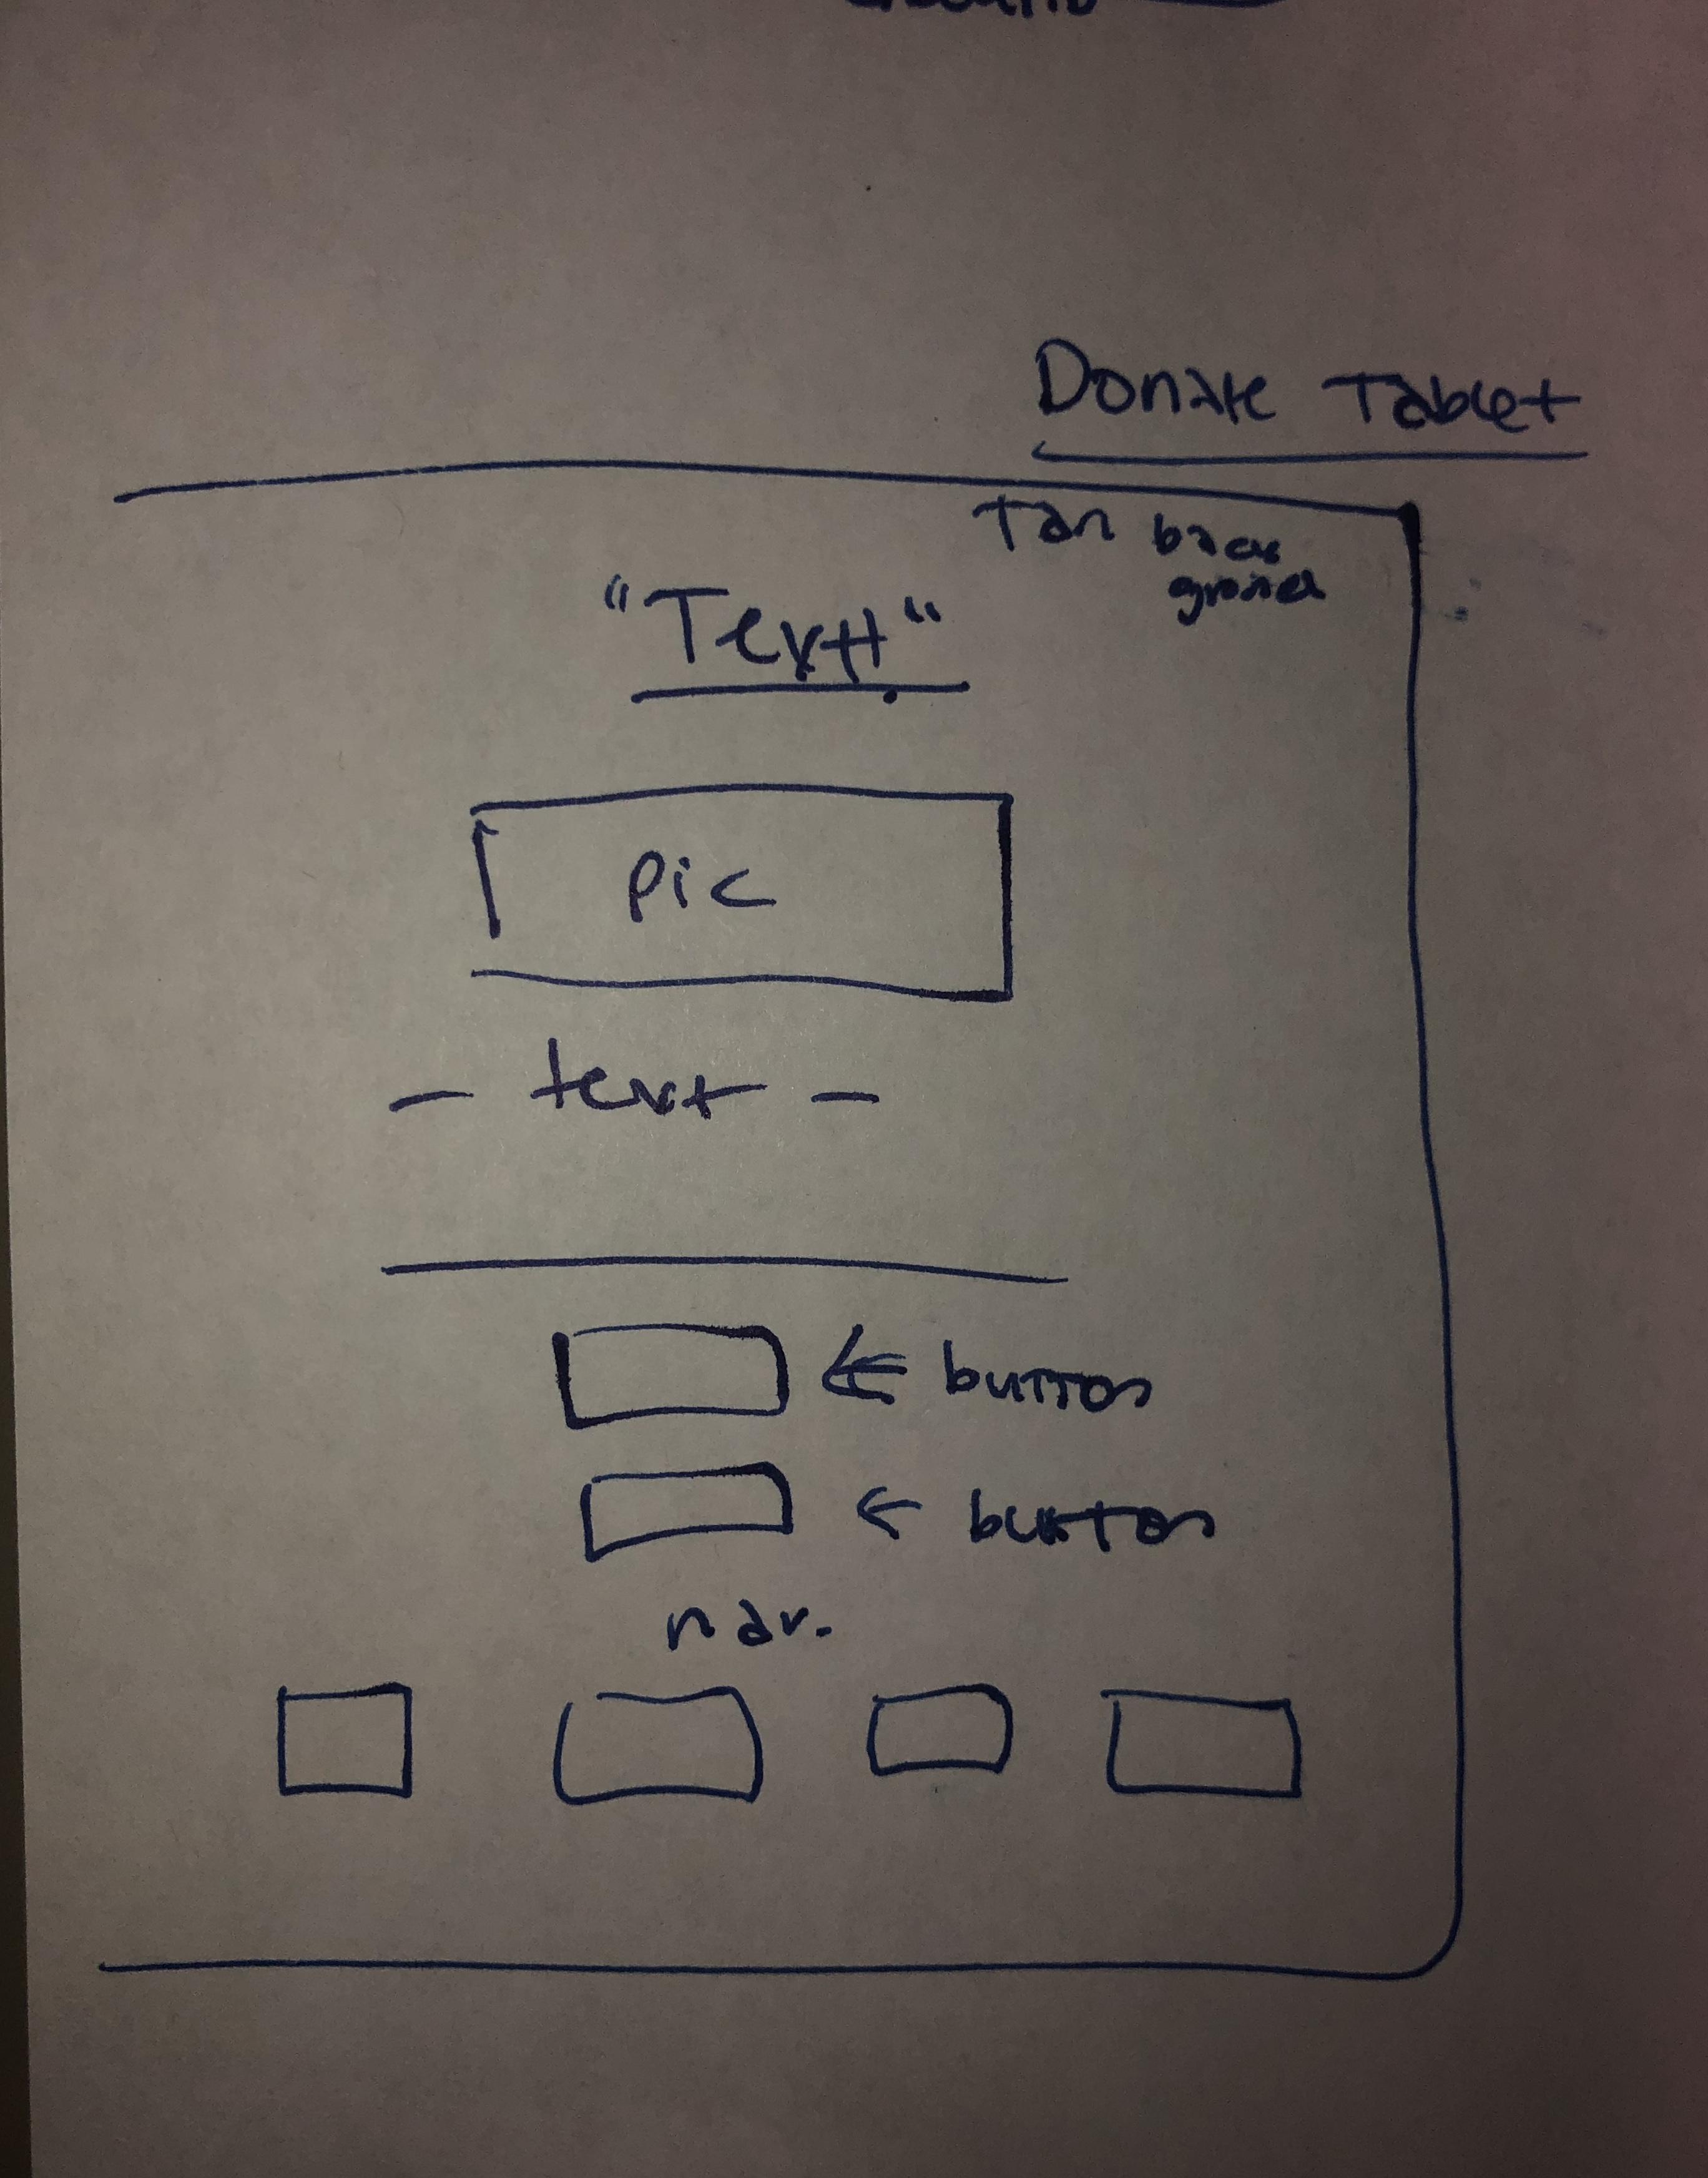 Donate Tablet
Tan back
ground
"Text"
Pic
- text -
button
button
nav.